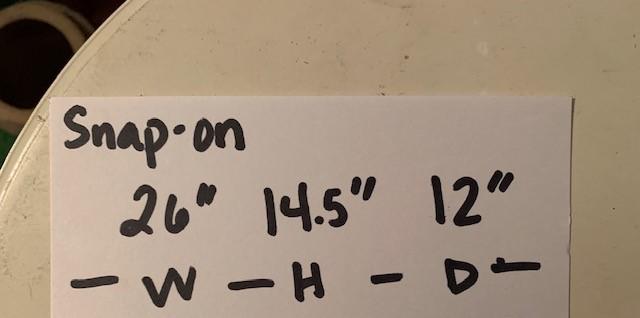 Snap-on
26" 14.5" 12"
- W - H - D -